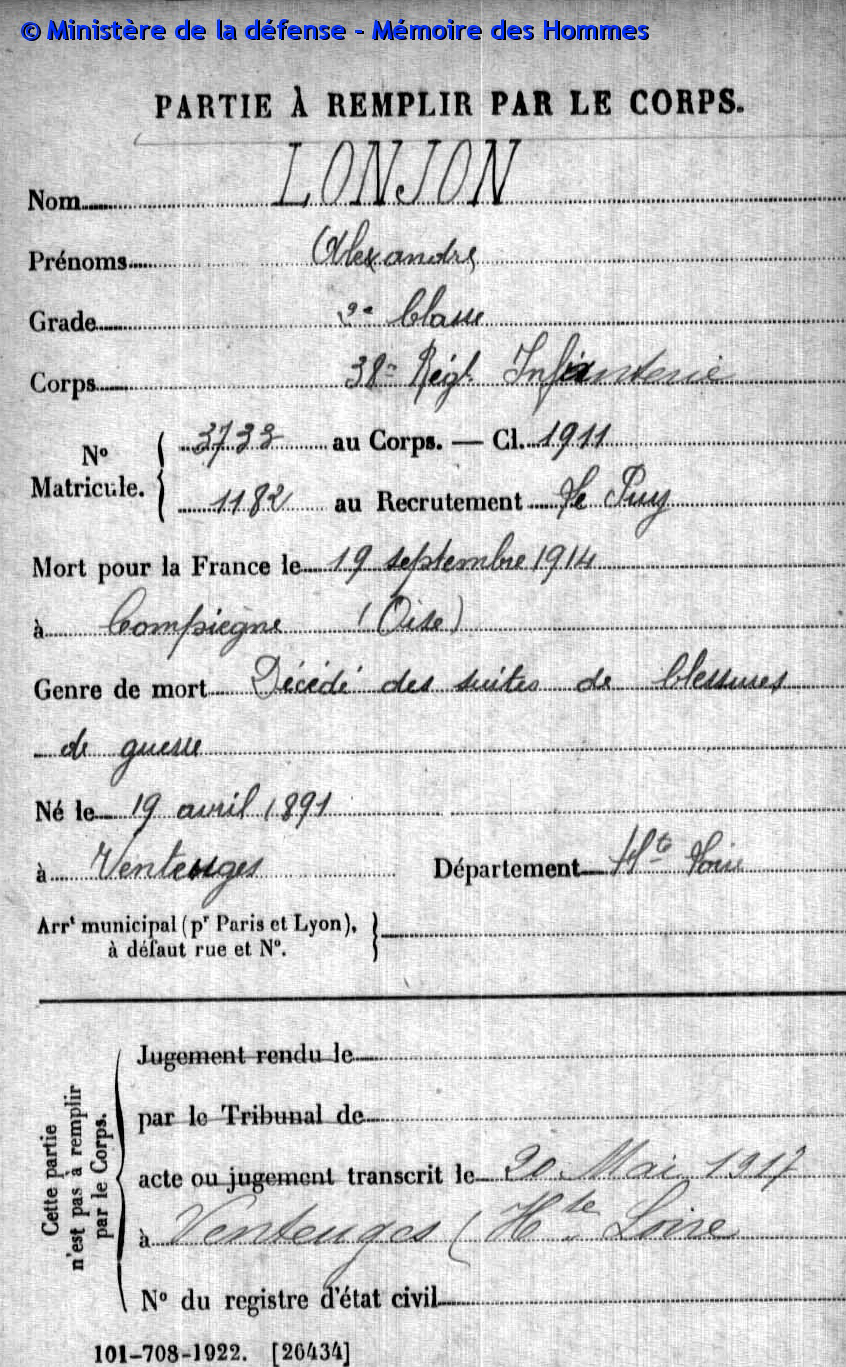 © Ministère de la défense - Mémoire des Hommes
PARTIE À REMPLIR PAR LE CORPS.
Nom LONJON
Prénoms Alexandre
Grade 2e Classe
Corps 38e Régt Infanterie
No Matricule. { 3733 au Corps. — Cl. 1911
1182 au Recrutement Le Puy
Mort pour la France le 19 septembre 1914
à Compiègne (Oise)
Genre de mort Décédé des suites de blessures
de guerre
Né le 19 avril 1891
à Venteuges Département Hte Loire
Arrt municipal (pr Paris et Lyon), }
à défaut rue et No.
Cette partie
n'est pas à remplir
par le Corps.
Jugement rendu le
par le Tribunal de
acte ou jugement transcrit le 20 Mai 1917
à Venteuges (Hte Loire
No du registre d'état civil
101-708-1922. [26434]